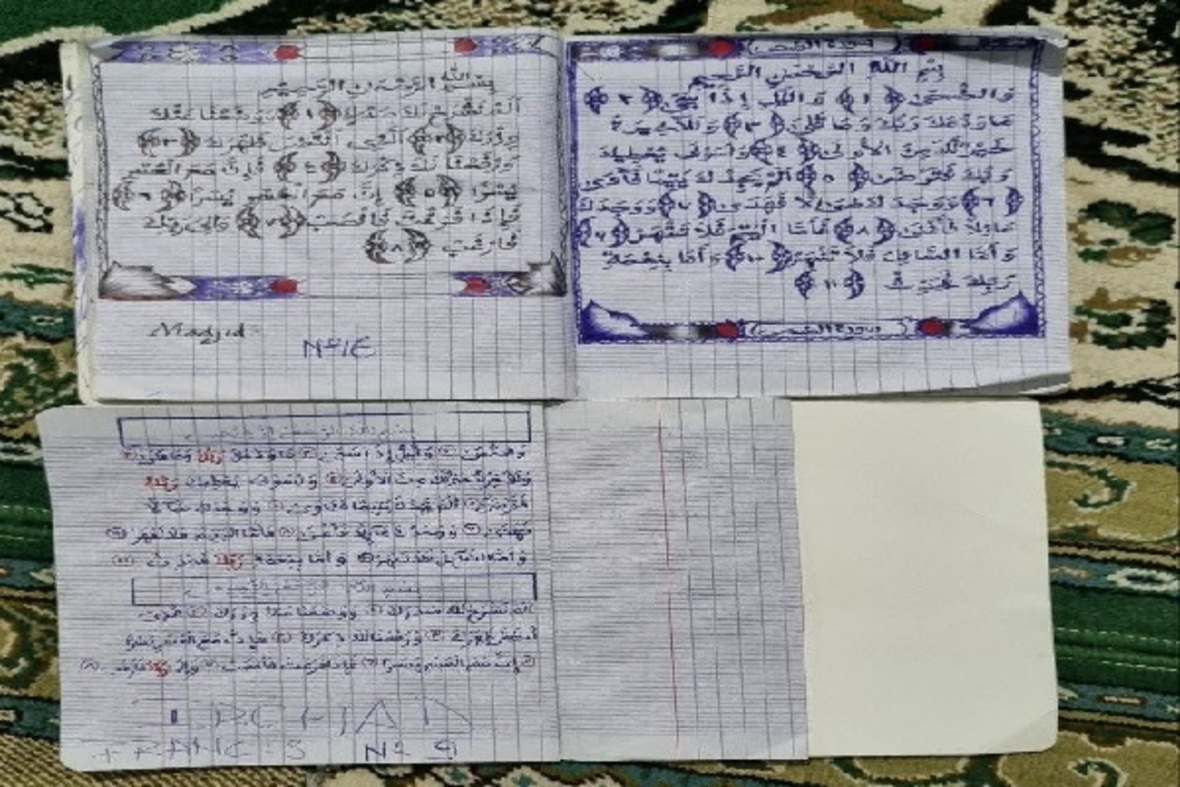 سورة الضحى
بسم الله الرحمن الرحيم
والضحى ﴿١﴾ والليل إذا سجى ﴿٢﴾
ما ودعك ربك وما قلى ﴿٣﴾ وللآخرة
خير لك من الأولى ﴿٤﴾ ولسوف يعطيك
ربك فترضى ﴿٥﴾ ألم يجدك يتيما فآوى
﴿٦﴾ ووجدك ضالا فهدى ﴿٧﴾ ووجدك
عائلا فأغنى ﴿٨﴾ فأما اليتيم فلا تقهر ﴿٩﴾
وأما السائل فلا تنهر ﴿١٠﴾ وأما بنعمة
ربك فحدث ﴿١١﴾
سورة الضحى
بسم الله الرحمن الرحيم
ألم نشرح لك صدرك ﴿١﴾ ووضعنا عنك
وزرك ﴿٢﴾ الذي أنقض ظهرك ﴿٣﴾
ورفعنا لك ذكرك ﴿٤﴾ فإن مع العسر
يسرا ﴿٥﴾ إن مع العسر يسرا ﴿٦﴾
فإذا فرغت فانصب ﴿٧﴾ وإلى ربك
فارغب ﴿٨﴾
Madjid
N°18
بسم الله الرحمن الرحيم
والضحى ① والليل إذا سجى ② ما ودعك ربك وما قلى ③
وللآخرة خير لك من الأولى ④ ولسوف يعطيك ربك
فترضى ⑤ ألم يجدك يتيما فآوى ⑥ ووجدك ضالا
فهدى ⑦ ووجدك عائلا فأغنى ⑧ فأما اليتيم فلا تقهر ⑨
وأما السائل فلا تنهر ⑩ وأما بنعمة ربك فحدث ⑪
بسم الله الرحمن الرحيم
ألم نشرح لك صدرك ① ووضعنا عنك وزرك ② الذي
أنقض ظهرك ③ ورفعنا لك ذكرك ④ فإن مع العسر يسرا
⑤ إن مع العسر يسرا ⑥ فإذا فرغت فانصب ⑦ وإلى ربك فارغب ⑧
N° 9